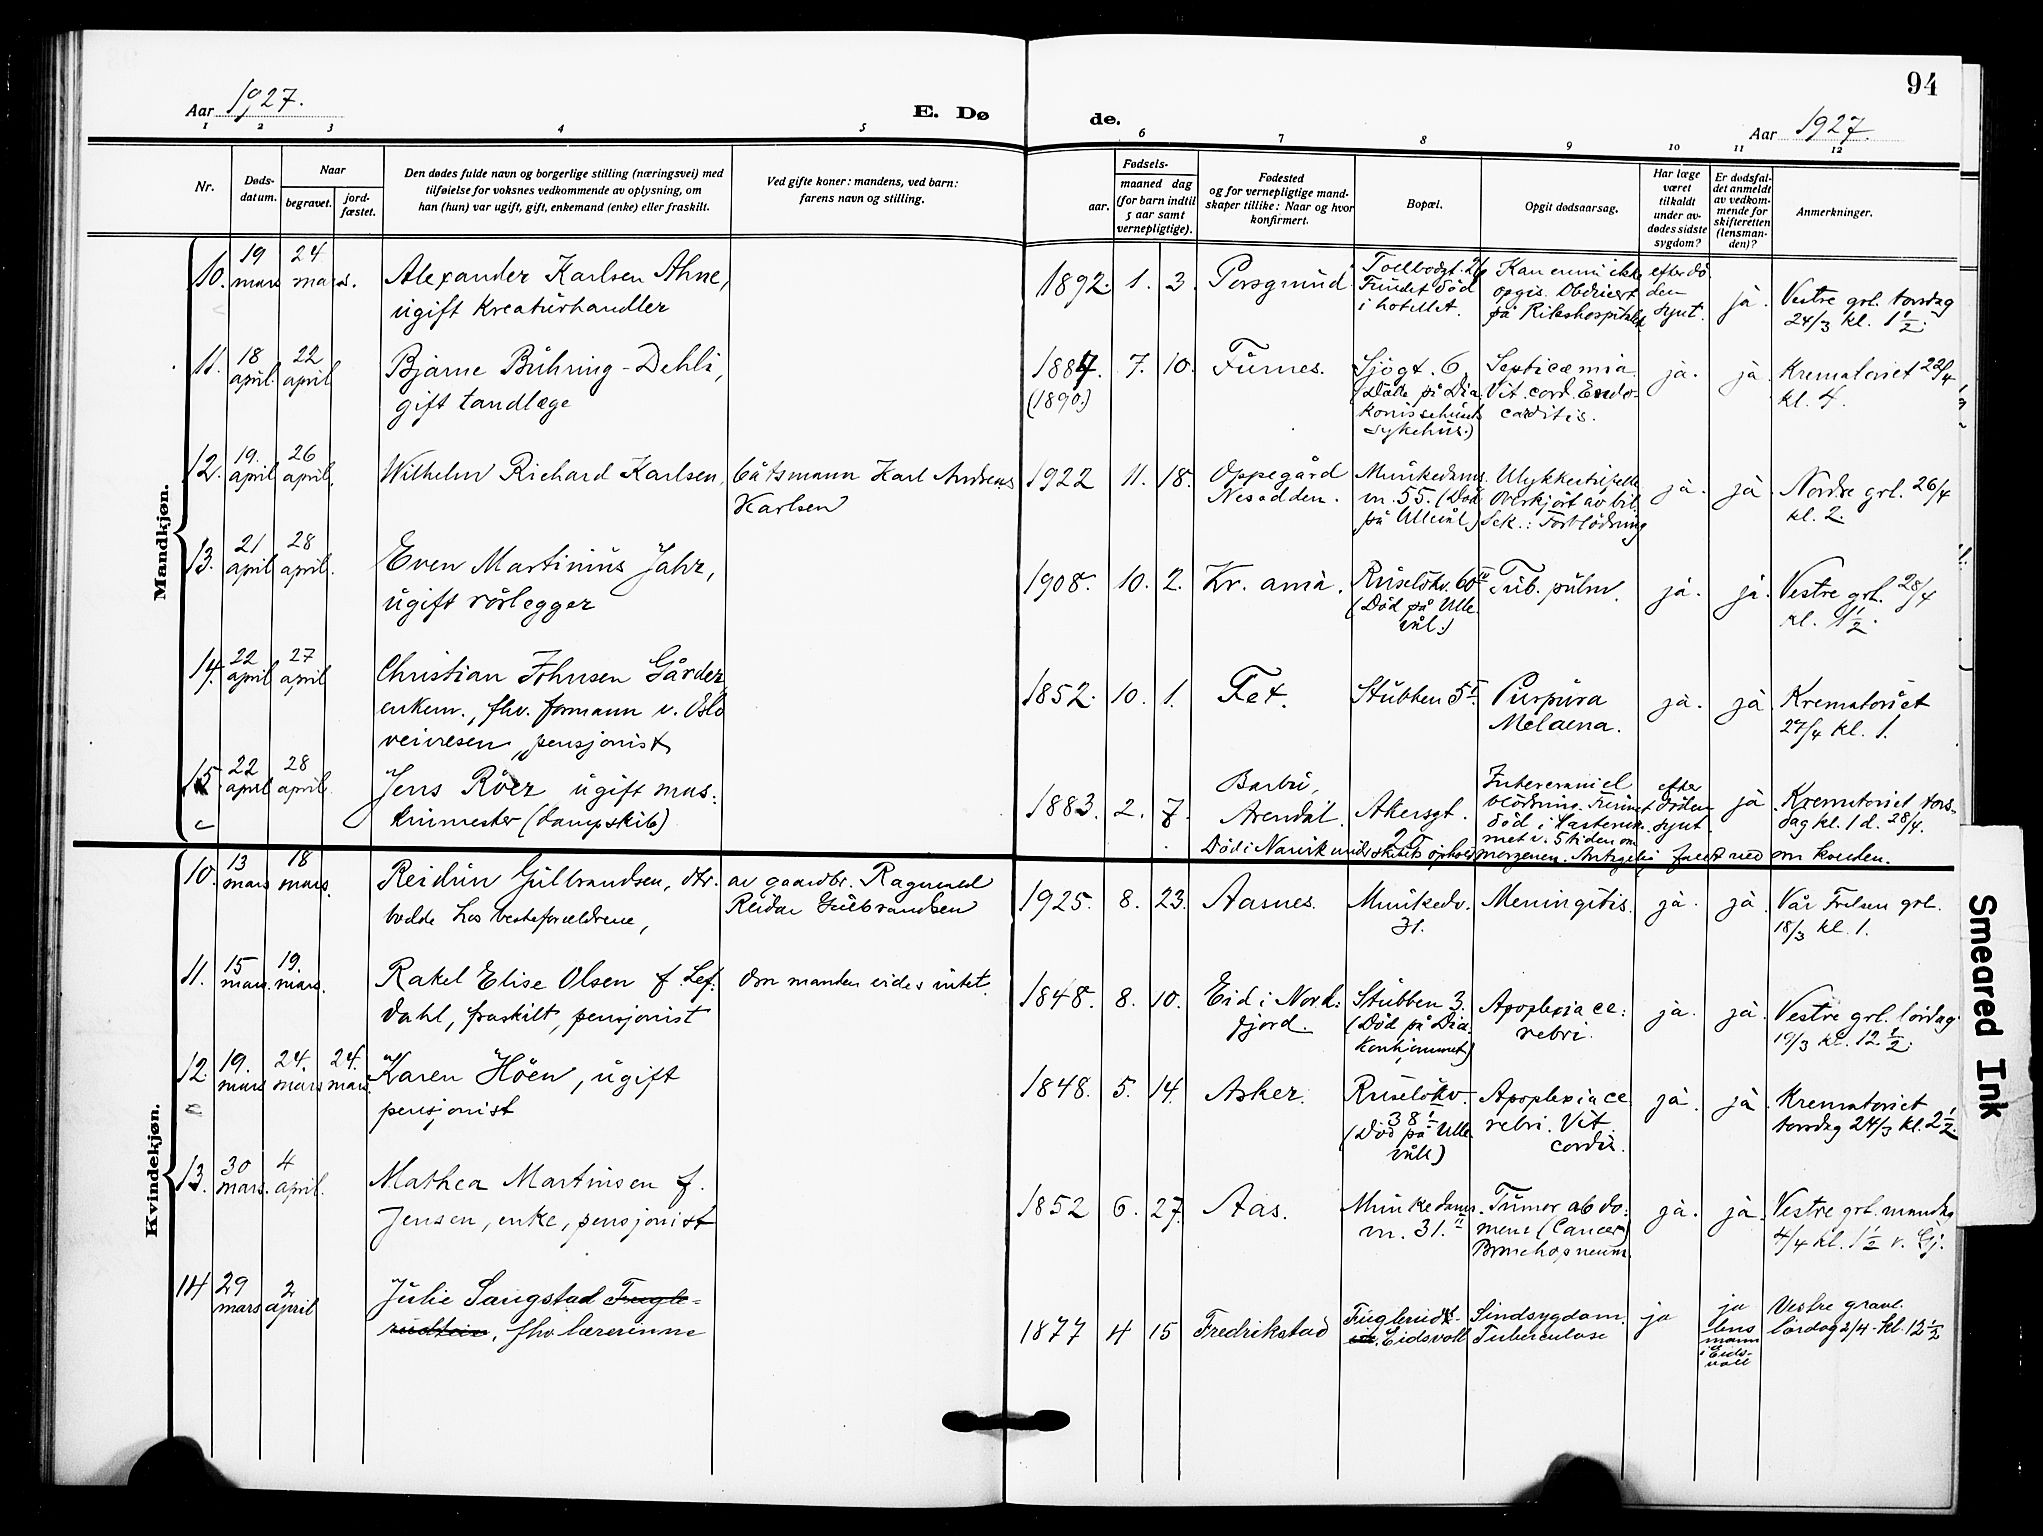 94
Aar 1927.
E. Dø
de.
Aar 1927.
1 2 3 4 5 6 7 8 9 10 11 12
Nr.
Døds-
datum.
Naar
begravet.
jord-
fæstet.
Den dødes fulde navn og borgerlige stilling (næringsvei) med
tilføielse for voksnes vedkommende av oplysning, om
han (hun) var ugift, gift, enkemand (enke) eller fraskilt.
Ved gifte koner: mandens, ved barn:
farens navn og stilling.
Fødsels-
aar.
maaned dag
(for barn indtil
5 aar samt
vernepligtige).
Fødested
og for vernepligtige mand-
skaper tillike: Naar og hvor
konfirmert.
Bopæl.
Opgit dødsaarsag.
Har læge
været
tilkaldt
under av-
dødes sidste
sygdom?
Er dødsfal-
det anmeldt
av vedkom-
mende for
skifteretten
(lensman-
den)?
Anmerkninger.
Mandkjøn.
10. 19 mars 24 mars.
Alexander Karlsen Ahne,
ugift kreaturhandler
1892. 1. 3. Porsgrund
Toelbodgt.
Fundet død
i hotellet.
Kan ennu ikke
opgis. Obducert
på Rikshospitalet
efter dø
den
synt.
ja.
Vestre grl. torsdag
24/3 kl. 1 1/2.
11. 18 april. 22 april
Bjarne Bühring-Dehli,
gift tandlæge
1887. 7. 10. Furnes.
(1890.)
Sjøgt. 6.
(Døde på Dia
konissehusets
sykehus.)
Septicæmia.
Vit. cord. Endo-
carditis.
ja. ja.
Krematoriet 22/4
kl. 4.
12. 19. april 26 april.
Wilhelm Richard Karlsen,
båtsmann Karl Andreas
Karlsen
1922 11. 18. Oppegård
Nesodden.
Munkedams
vn. 55. (Død
på Ullevål)
Ulykkestilfelle
Overkjørt av bil
Sek.: Forblødning
ja. ja.
Nordre grl. 26/4
kl. 2.
13. 21 april 28 april.
Even Martinius Jahr,
ugift rørlegger
1908. 10. 2. Kr. ania.
Ruseløkv. 60 IV
(Død på Ulle
vål.)
Tub. pulm.
ja. ja.
Vestre grl. 28/4
kl. 1 1/2.
14. 22 april 27 april
Christian Johnsen Gårder
enkem., fhv. formann v. Oslo
veivesen, pensjonist
1852. 10. 1. Fet.
Stubben 5 I.
Purpura
Melaena.
ja. ja
Krematoriet
27/4 kl. 1.
15. 22 april 28 april.
Jens Röer ugift mas:
kinmester (dampskib)
1883. 2. 7. Barbu,
Arendal.
Akersgt.
Intercraniel
blødning. Funnet
død i
met i 5 tiden om
efter
døden
synt.
ja
Krematoriet tors-
dag kl. 1 d. 28/4.
Død i Narvik under skibets ophold morgenen. Antagelig faldt ned
Kvindekjøn.
10. 13 mars 18 mars.
Reidun Gulbrandsen, dtr.
bodde hos besteforældrene,
av gaardbr. Ragnvald
Reidar Gulbrandsen
1925. 8. 23. Aasnes.
Munkedv.
31.
Meningitis.
ja. ja.
Vår Frelsers grl.
18/3 kl. 1.
11. 15 mars. 19. mars.
Rakel Elise Olsen f. Lef.
dahl, fraskilt, pensjonist
Om manden vides intet.
1848. 8. 10. Eid i Nord:
fjord.
Stubben 3.
(Død på Dia.
konhjemmet)
Apoplexia ce:
rebri.
ja. ja.
Vestre grl. lördag
19/3 kl. 12 1/2.
12. 19. mars 24. mars 24. mars.
Karen Höen, ugift
pensjonist
1848. 5. 14. Asker.
Ruseløkv.
38 I
(Død på Ulle
vål)
Apoplexia ce
rebri. Vit.
cordis.
ja. ja.
Krematoriet
torsdag 24/3 kl. 2 1/2.
13. 30 mars. 4 april.
Mathea Martinsen f.
Jensen, enke, pensjonist
1852 6. 27. Aas.
Munkedams.
vn. 31. II
Tumor abdo:
mens (Cancer)
Bronchopneum.
ja. ja.
Vestre grl. mandag
4/4 kl. 1 1/2 v. Gj.
14 29 mars 2 april
Julie Sangstad Fugle-
rudtein, fhv lærerinne
1877 4 15 Fredrikstad
Fuglerudt-
Eidsvoll
Sindsygdom.
Tuberculose
ja
ja
lens
mann
i Eids-
voll
Vestre gravl.
lördag 2/4 - kl. 12 1/2
Smeared Ink